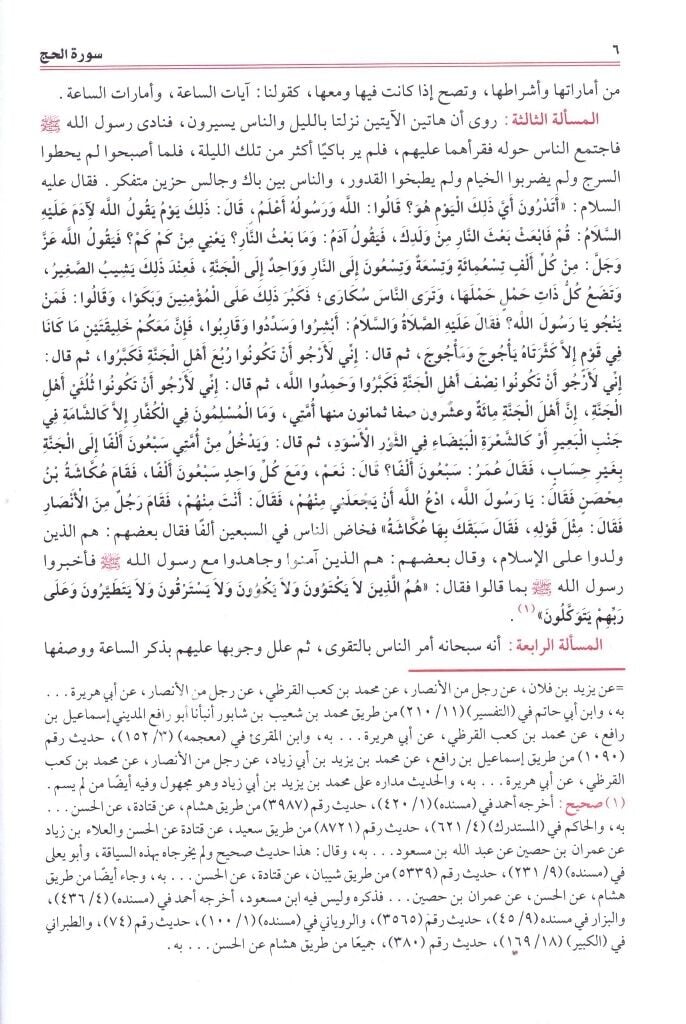 ٦
سورة الحج
من أماراتها وأشراطها، وتصح إذا كانت فيها ومعها، كقولنا: آيات الساعة، وأمارات الساعة.
المسألة الثالثة: روى أن هاتين الآيتين نزلتا بالليل والناس يسيرون، فنادى رسول الله ﷺ
فاجتمع الناس حوله فقرأهما عليهم، فلم ير باكيًا أكثر من تلك الليلة، فلما أصبحوا لم يحطوا
السرج ولم يضربوا الخيام ولم يطبخوا القدور، والناس بين باك وجالس حزين متفكر. فقال عليه
السلام: «أَتَدْرُونَ أَيَّ ذَلِكَ الْيَوْمِ هُوَ؟ قَالُوا: اللَّه وَرَسُولُهُ أَعْلَمُ، قَالَ: ذَلِكَ يَوْمُ يَقُولُ اللَّه لِآدَمَ عَلَيْهِ
السَّلَامُ: قُمْ فَابْعَثْ بَعْثَ النَّارِ مِنْ وَلَدِكَ، فَيَقُولُ آدَمُ: وَمَا بَعْثُ النَّارِ؟ يَعْنِي مِنْ كَمْ كَمْ؟ فَيَقُولُ اللَّه عَزَّ
وَجَلَّ: مِنْ كُلِّ أَلْفٍ تِسْعُمِائَةٍ وَتِسْعَةٌ وَتِسْعُونَ إِلَى النَّارِ وَوَاحِدٌ إِلَى الْجَنَّةِ، فَعِنْدَ ذَلِكَ يَشِيبُ الصَّغِيرُ،
وَتَضَعُ كُلُّ ذَاتِ حَمْلٍ حَمْلَهَا، وَتَرَى النَّاسَ سُكَارَى؛ فَكَبُرَ ذَلِكَ عَلَى الْمُؤْمِنِينَ وَبَكَوْا، وَقَالُوا: فَمَنْ
يَنْجُو يَا رَسُولَ اللَّه؟ فقالَ عَلَيْهِ الصَّلَاةُ وَالسَّلَامُ: أَبْشِرُوا وَسَدِّدُوا وَقَارِبُوا، فَإِنَّ مَعَكُمْ خَلِيقَتَيْنِ مَا كَانَا
فِي قَوْمٍ إِلَّا كَثَّرَتَاهُ يَأْجُوجَ وَمَأْجُوجَ، ثم قال: إِنِّي لَأَرْجُو أَنْ تَكُونُوا رُبُعَ أَهْلِ الْجَنَّةِ فَكَبَّرُوا، ثم قال:
إِنِّي لَأَرْجُو أَنْ تَكُونُوا نِصْفَ أَهْلِ الْجَنَّةِ فَكَبَّرُوا وَحَمِدُوا اللَّه، ثم قال: إِنِّي لَأَرْجُو أَنْ تَكُونُوا ثُلُثَيْ أَهْلِ
الْجَنَّةِ، إِنَّ أَهْلَ الْجَنَّةِ مِائَةٌ وعشْرون صفا ثمانون منها أُمَّتِي، وَمَا الْمُسْلِمُونَ فِي الْكُفَّارِ إِلَّا كَالشَّامَةِ فِي
جَنْبِ الْبَعِيرِ أَوْ كَالشَّعْرَةِ الْبَيْضَاءِ فِي الثَّوْرِ الْأَسْوَدِ، ثم قال: وَيَدْخُلُ مِنْ أُمَّتِي سَبْعُونَ أَلْفًا إِلَى الْجَنَّةِ
بِغَيْرِ حِسَابٍ، فَقَالَ عُمَرُ: سَبْعُونَ أَلْفًا؟ قَالَ: نَعَمْ، وَمَعَ كُلِّ وَاحِدٍ سَبْعُونَ أَلْفًا، فَقَامَ عُكَّاشَةُ بْنُ
مِحْصَنٍ فَقَالَ: يَا رَسُولَ اللَّه، ادْعُ اللَّه أَنْ يَجْعَلَنِي مِنْهُمْ، فَقَالَ: أَنْتَ مِنْهُمْ، فَقَامَ رَجُلٌ مِنَ الْأَنْصَارِ
فَقَالَ: مِثْلَ قَوْلِهِ، فَقَالَ سَبَقَكَ بِهَا عُكَّاشَةُ» فخاض الناس في السبعين ألفًا فقال بعضهم: هم الذين
ولدوا على الإسلام، وقال بعضهم: هم الذين آمنوا وجاهدوا مع رسول الله ﷺ فأخبروا
رسول الله ﷺ بما قالوا فقال: «هُمُ الَّذِينَ لَا يَكْتَوُونَ وَلَا يَكْوُونَ وَلَا يَسْتَرْقُونَ وَلَا يَتَطَيَّرُونَ وَعَلَى
رَبِّهِمْ يَتَوَكَّلُونَ»(١).
المسألة الرابعة: أنه سبحانه أمر الناس بالتقوى، ثم علل وجوبها عليهم بذكر الساعة ووصفها
=عن يزيد بن فلان، عن رجل من الأنصار، عن محمد بن كعب القرظي، عن رجل من الأنصار، عن أبي هريرة...
به، وابن أبي حاتم في (التفسير) (١١/ ٢١٠) من طريق محمد بن شعيب بن شابور أنبأنا أبو رافع المديني إسماعيل بن
رافع، عن محمد بن كعب القرظي، عن أبي هريرة... به، وابن المقرئ في (معجمه) (٣/ ١٥٢)، حديث رقم
(١٠٩٠) من طريق إسماعيل بن رافع، عن محمد بن يزيد بن أبي زياد، عن رجل من الأنصار، عن محمد بن كعب
القرظي، عن أبي هريرة... به، والحديث مداره على محمد بن يزيد بن أبي زياد وهو مجهول وفيه أيضًا من لم يسم.
(١) صحيح: أخرجه أحمد في (مسنده) (١/ ٤٢٠)، حديث رقم (٣٩٨٧) من طريق هشام، عن قتادة، عن الحسن...
به، والحاكم في (المستدرك) (٤/ ٦٢١)، حديث رقم (٨٧٢١) من طريق سعيد، عن قتادة عن الحسن والعلاء بن زياد
عن عمران بن حصين عن عبد الله بن مسعود... به، وقال: هذا حديث صحيح ولم يخرجاه بهذه السياقة، وأبو يعلى
في (مسنده) (٩/ ٢٣١)، حديث رقم (٥٣٣٩) من طريق شيبان، عن قتادة، عن الحسن... به، وجاء أيضًا من طريق
هشام، عن الحسن، عن عمران بن حصين... فذكره وليس فيه ابن مسعود، أخرجه أحمد في (مسنده) (٤/ ٤٣٦)،
والبزار في (مسنده) (٩/ ٤٥)، حديث رقم (٣٥٦٥)، والروياني في (مسنده) (١/ ١٠٠)، حديث رقم (٧٤)، والطبراني
في (الكبير) (١٨/ ١٦٩)، حديث رقم (٣٨٠)، جميعًا من طريق هشام عن الحسن... به.